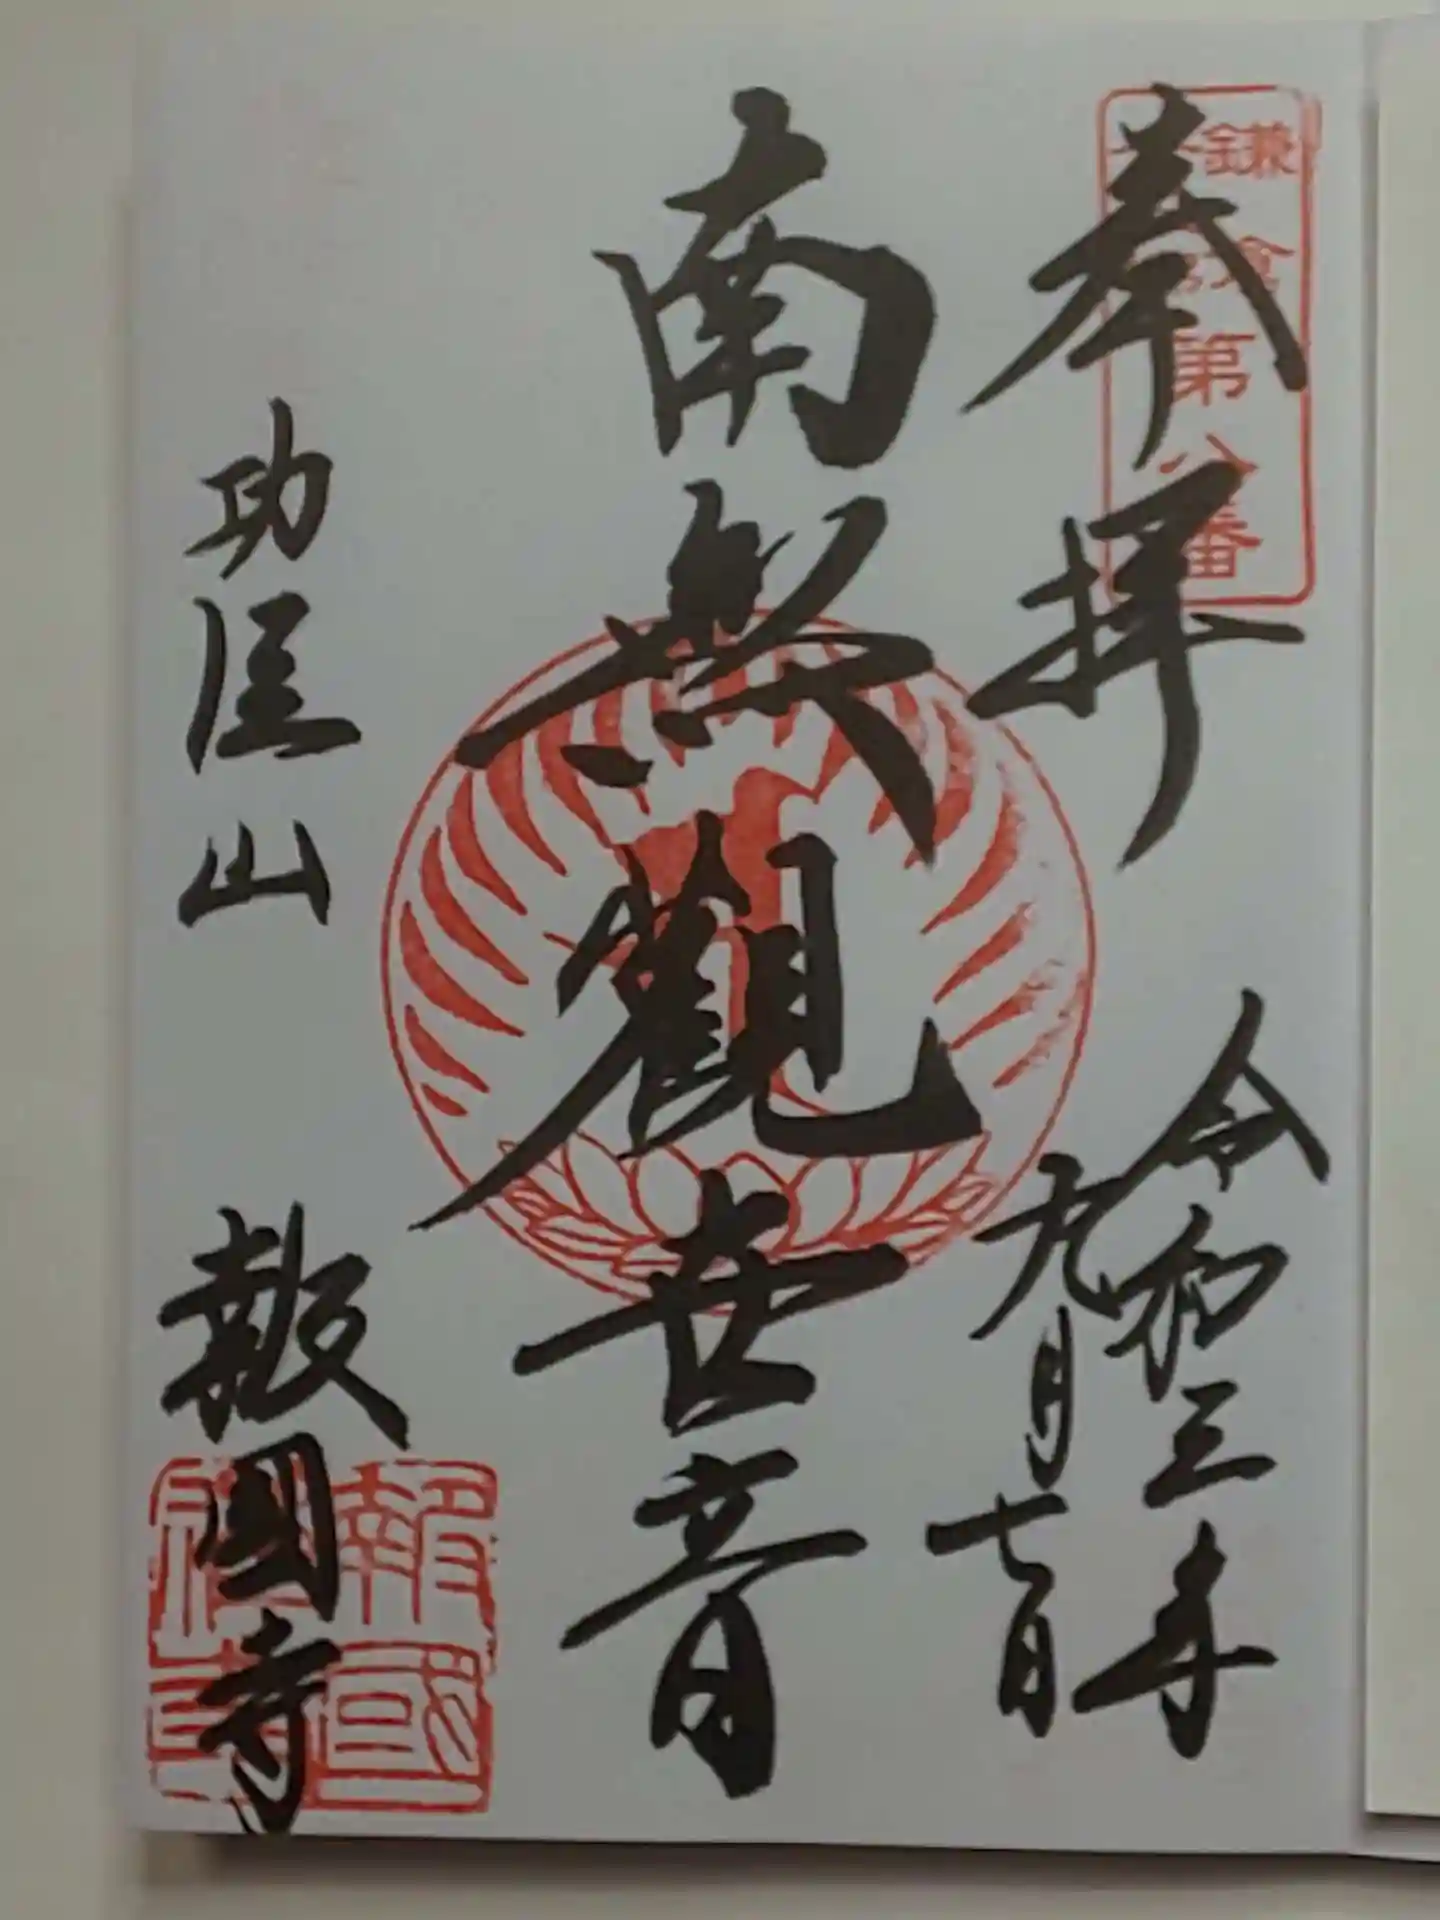 鎌倉
第八番
奉拝
令和三年
九月七日
南無觀世音
功臣山
報国寺
報國
禅寺